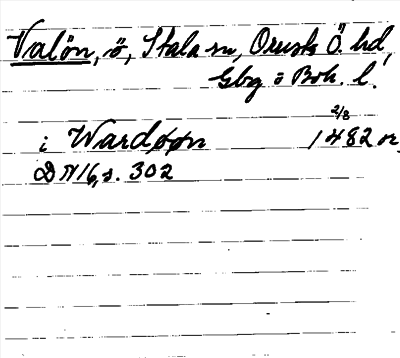 Valön, ö, Stala sn, Orusts Ö. hd,
Gbg o Boh. l.
i Wardøøn 2/8 1482 or.
DN 16, s. 302